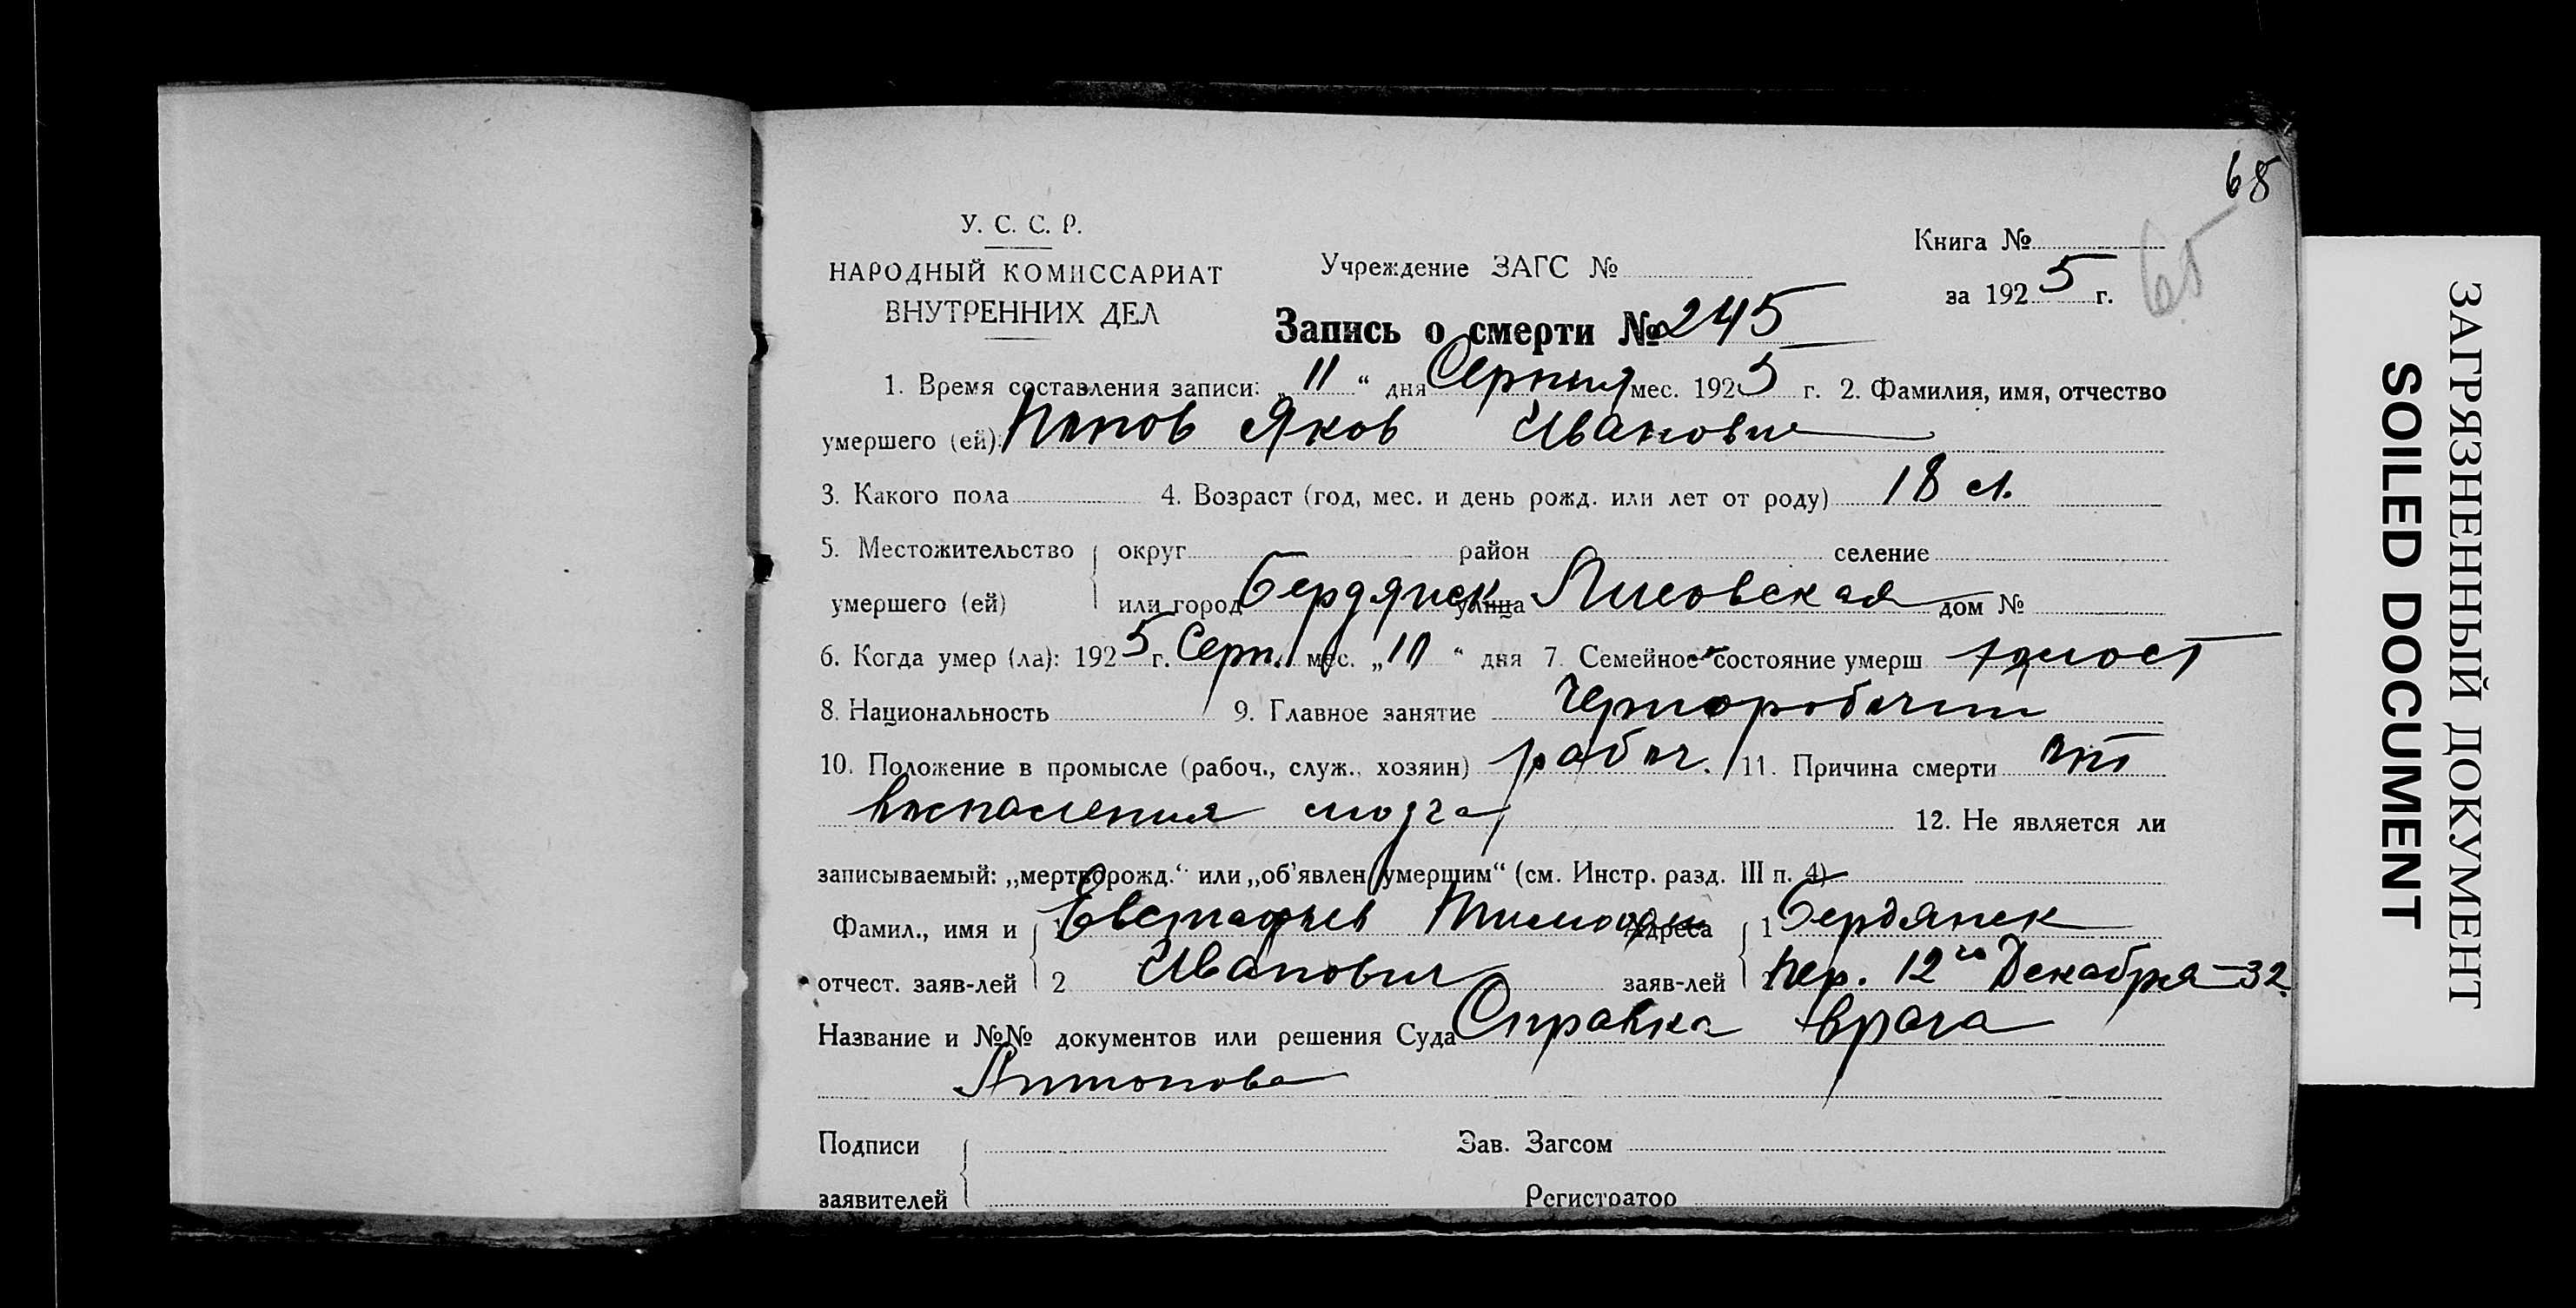 68
65
У. С. С. Р.
НАРОДНЫЙ КОМИССАРИАТ
ВНУТРЕННИХ ДЕЛ
Учреждение ЗАГС №
Книга №
за 1925 г.
Запись о смерти № 245
1. Время составления записи: „11“ дня Серпня мес. 1925 г. 2. Фамилия, имя, отчество
умершего (ей): Попов Яков Иванович
3. Какого пола 4. Возраст (год, мес. и день рожд. или лет от роду) 18 л.
5. Местожительство умершего (ей) округ район селение
или город Бердянск улица Лисовская дом №
6. Когда умер (ла): 1925 г. Серп. мес. „10“ дня 7. Семейное состояние умерш холост
8. Национальность 9. Главное занятие Чернорабочий
10. Положение в промысле (рабоч., служ., хозяин) рабоч. 11. Причина смерти от
воспаления мозга 12. Не является ли
записываемый: „мертворожд.“ или „об'явлен умершим“ (см. Инстр. разд. III п. 4)
Фамил., имя и 1 Евстафьев Тимофей Адреса 1 Бердянск
отчест. заяв-лей 2 Иванович заяв-лей пер. 12го Декабря–32.
Название и №№ документов или решения Суда Справка врача
Антонова
Подписи Зав. Загсом
заявителей Регистратор
ЗАГРЯЗНЕННЫЙ ДОКУМЕНТ
SOILED DOCUMENT